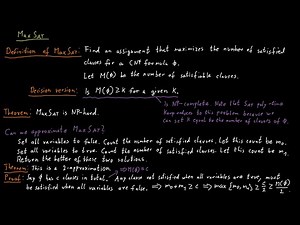 Max Sat
Definition of MaxSat: Find an assignment that maximises the number of satisfied
clauses for a CNF formula Φ.
Let M(Φ) be the number of satisfiable clauses.
Decision version: Is M(Φ) ≥ K for a given K.
Is NP-complete. Note that Sat poly-time
Karp reduces to this problem because we
can set K equal to the number of clauses of Φ.
Theorem: MaxSat is NP-hard.
Can we approximate MaxSat?
Set all variables to false. Count the number of satisfied clauses. Let this count be m₀.
Set all variables to true. Count the number of satisfied clauses. Let this count be m₁.
Return the better of these two solutions.
Theorem: This is a 2-approximation.
Proof: Say Φ has c clauses in total. Any clause not satisfied when all variables are true, must
be satisfied when all variables are false. ⇒ m₀+m₁ ≥ c ⇒ max{m₀,m₁} ≥ c/2 ≥ M(Φ)/2